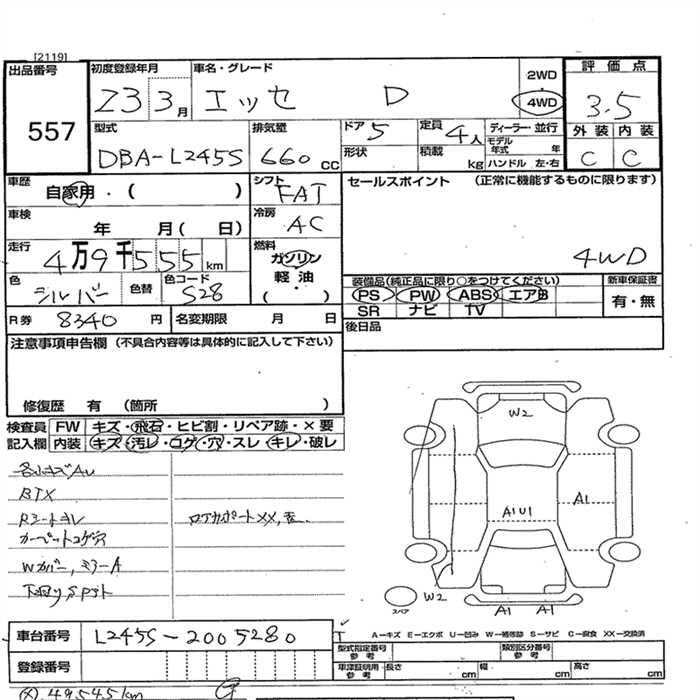 [2119]
出品番号
557
初度登録年月
Z3 3月
車名・グレード
エッセ D
2WD
4WD
評価点
3.5
外装 内装
C C
型式
DBA-L245S
排気量
660 CC
ドア 5
形状
定員 4人
積載 kg
ディーラー・並行
モデル年式 年
ハンドル 左・右
車歴
自家用・( )
車検 年 月( 日)
走行
4万9千555km
色
シルバー
色替
色コード
S28
シフト
FAT
冷房
AC
燃料
ガソリン
軽油
( )
セールスポイント (正常に機能するものに限ります)
4WD
装備品(純正品に限り○をつけてください)
PS PW ABS エアB
SR ナビ TV
新車保証書
有・無
R券 8340 円
名変期限 月 日
後日品
注意事項申告欄 (不具合内容等は具体的に記入して下さい)
修復歴 有 (箇所 )
検査員記入欄
FW キズ・飛石・ヒビ割・リペア跡・×要
内装 キズ・汚レ・コゲ・穴・スレ・キレ・破レ
各小キズAU
BTX
Rシートヨレ
カーペットコゲ穴
Wカバー,ミラーA
W2
A1U1
A1
W2
A1 A1
スペア
車台番号
L245S-2005280
登録番号
A-キズ E-エクボ U-凹み W-補修跡 S-サビ C-腐食 XX-交換済
型式指定番号 参考
類別区分番号 参考
車庫証明用 参考
長さ cm 幅 cm 高さ cm
(X).49,545km